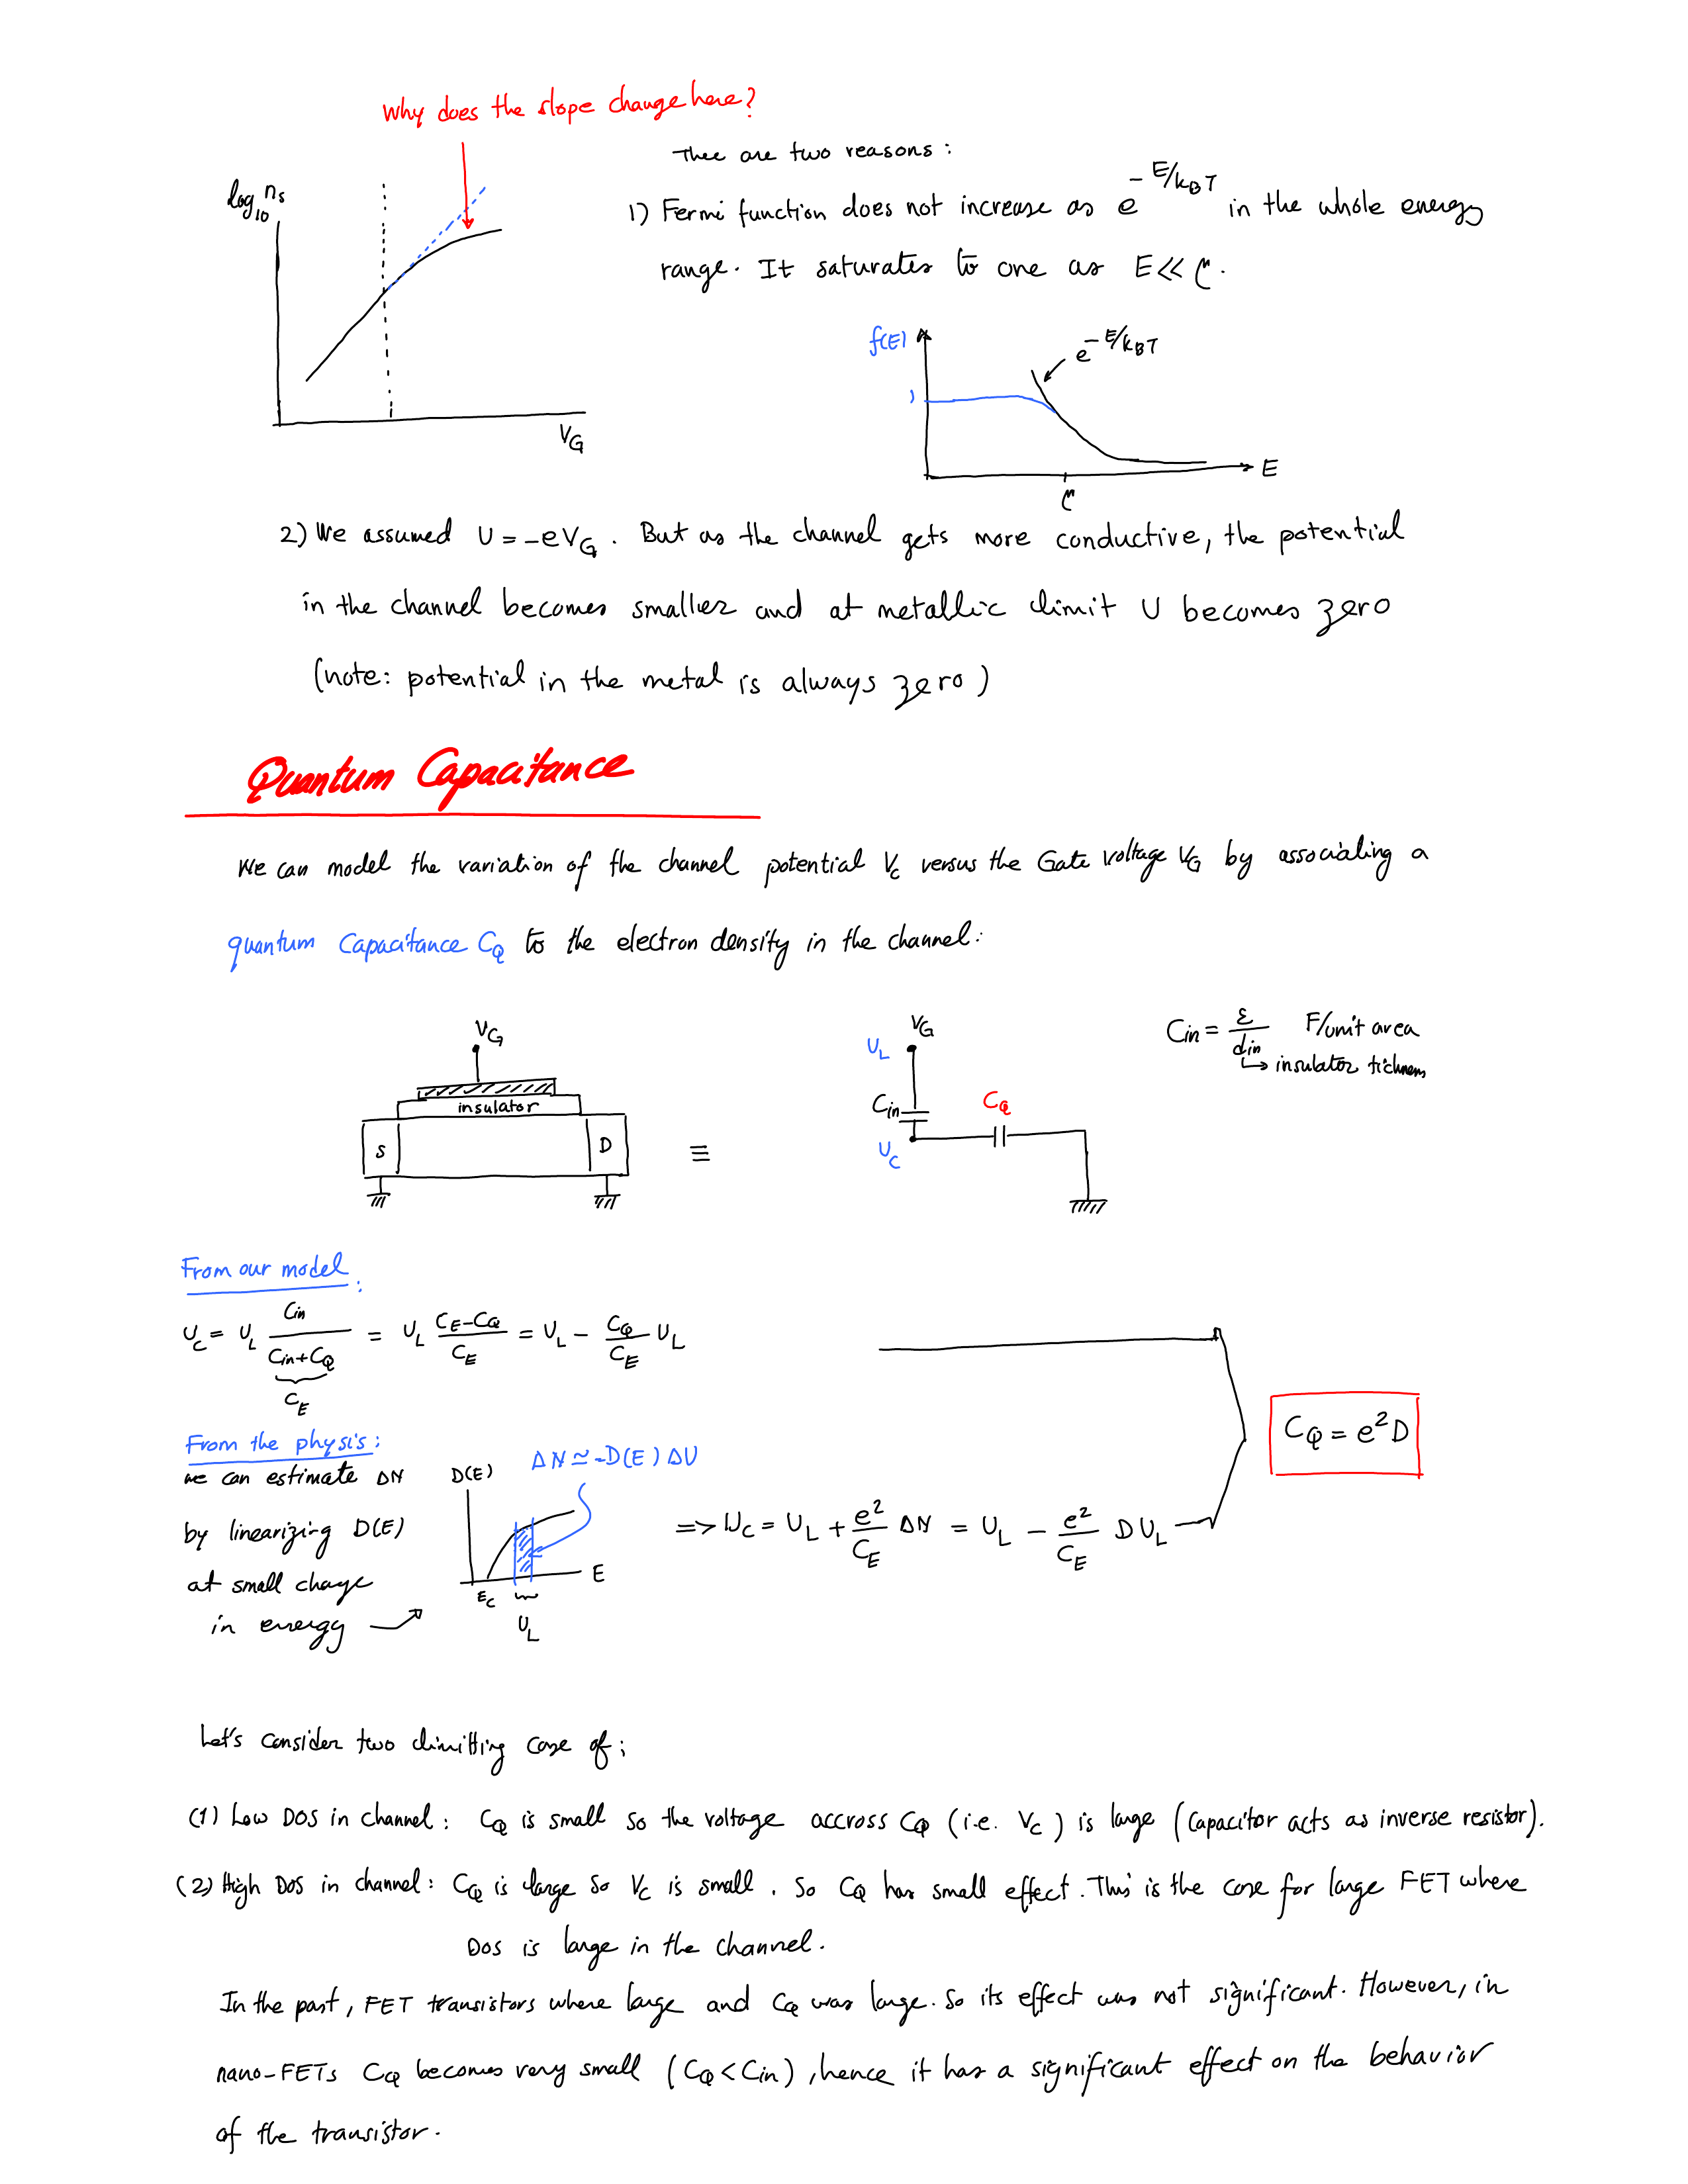 Why does the slope change here?
Thee are two reasons :
log₁₀ nₛ
1) Fermi function does not increase as e^{-E/k_BT} in the whole energy
range. It saturates to one as E << μ.
f(E)
e^{-E/k_BT}
1
V_G
E
μ
2) We assumed U = -eV_G . But as the channel gets more conductive, the potential
in the channel becomes smaller and at metallic limit U becomes zero
(note: potential in the metal is always zero)
Quantum Capacitance
We can model the variation of the channel potential V_c versus the Gate voltage V_G by associating a
quantum Capacitance C_Q to the electron density in the channel:
V_G
insulator
S
D
≡
V_G
U_L
C_in
C_Q
U_C
C_in = ε/d_in F/unit area
↳ insulator tickness
From our model:
U_C = U_L C_in/(C_in+C_Q) = U_L (C_E-C_Q)/C_E = U_L - C_Q/C_E U_L
C_E
From the physis:
we can estimate ΔN
by linearizing D(E)
at small change
in energy →
D(E)
ΔN ≃ -D(E) ΔU
E
E_c
U_L
=> U_C = U_L + e²/C_E ΔN = U_L - e²/C_E D U_L
C_Q = e²D
Let's consider two limitting case of;
(1) Low DOS in channel: C_Q is small so the voltage accross C_Q (i.e. V_c) is large (capacitor acts as inverse resistor).
(2) High DOS in channel: C_Q is large so V_c is small. So C_Q has small effect. This is the case for large FET where
DOS is large in the channel.
In the past, FET transistors where large and C_Q was large. So its effect was not significant. However, in
nano-FETs C_Q becomes very small (C_Q < C_in), hence it has a significant effect on the behavior
of the transistor.